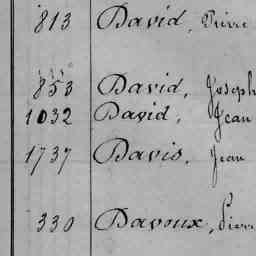 813 David, Pierre
853 David, Joseph
1032 David, Jean
1737 Davis, Jean
330 Davoux, Pierre